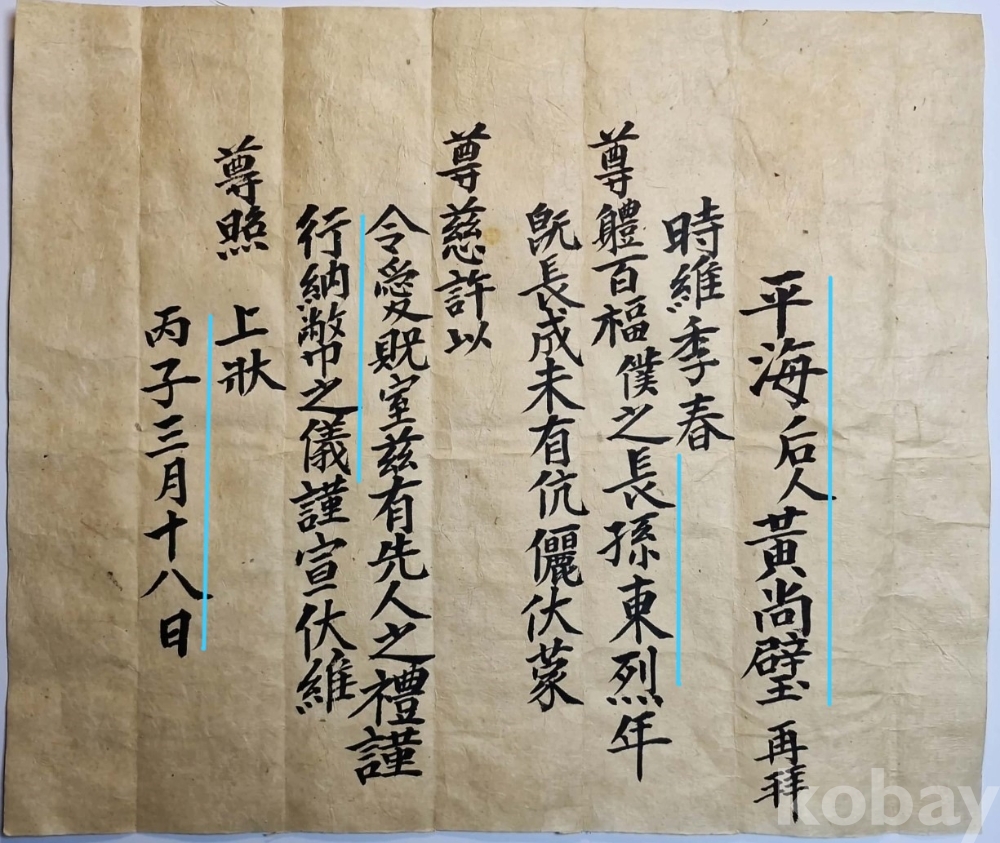 平海后人黃尙璧 再拜
時維季春
尊體百福僕之長孫東烈年
旣長成未有伉儷伏蒙
尊慈許以
令愛貺室玆有先人之禮謹
行納幣之儀謹宣伏維
尊照 上狀
丙子三月十八日
kobay